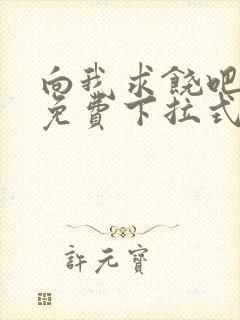 向我求饶吧
免費下拉式
許元寶